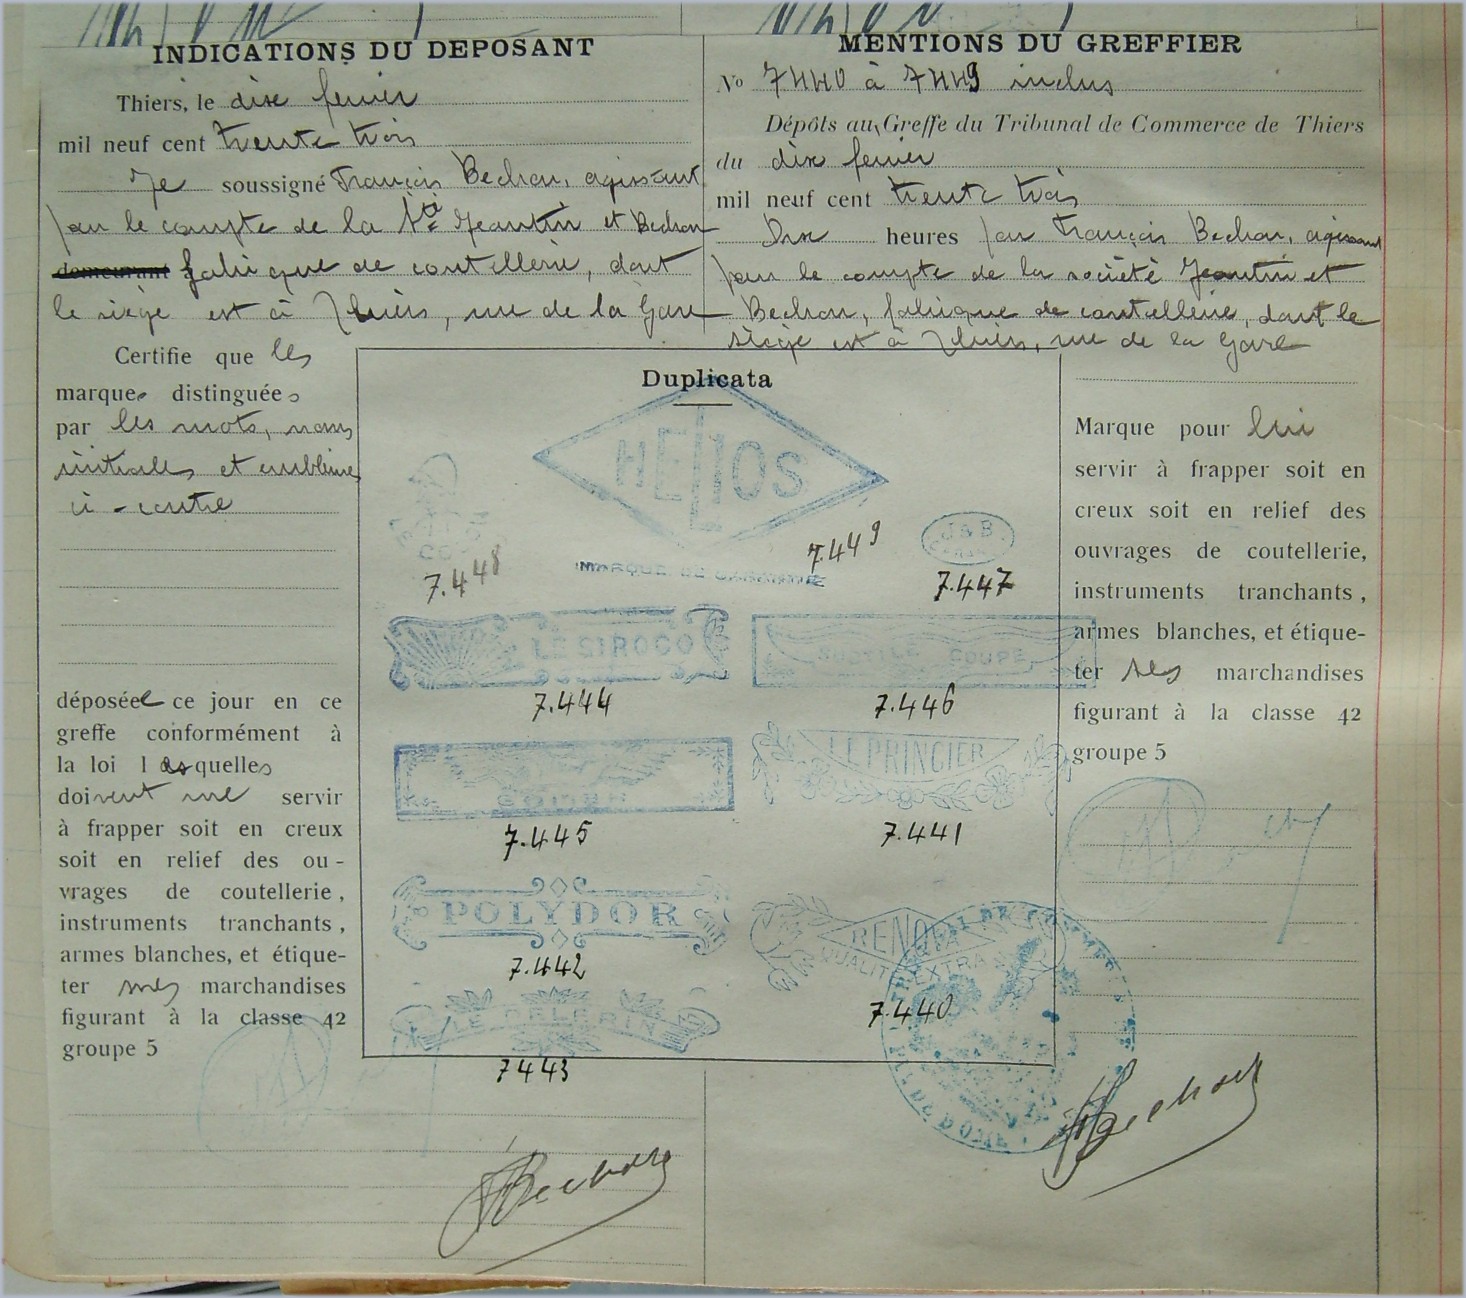 INDICATIONS DU DEPOSANT
Thiers, le dix fevrier
mil neuf cent trente trois
Je soussigné François Bechon, agissant
par le compte de la Sté Jeantin et Bechon
demeurant fabrique de coutellerie, dont
le siège est à Thiers, rue de la Gare
Certifie que les
marques distinguées
par les mots, noms
initiales et emblèmes
ci-contre
déposées ce jour en ce
greffe conformément à
la loi lesquelles
doivent me servir
à frapper soit en creux
soit en relief des ou-
vrages de coutellerie,
instruments tranchants,
armes blanches, et étique-
ter mes marchandises
figurant à la classe 42
groupe 5
Bechon
MENTIONS DU GREFFIER
No 7440 à 7449 inclus
Dépôts au Greffe du Tribunal de Commerce de Thiers
du dix fevrier
mil neuf cent trente trois
Dix heures par François Bechon, agissant
par le compte de la société Jeantin et
Bechon, fabrique de coutellerie, dont le
siège est à Thiers, rue de la Gare
Duplicata
HELIOS
MARQUE DE GARANTIE
7.448
7.449
J & B
7.447
LE SIROCO
7.444
SUBTILE COUPE
7.446
7.445
LE PRINCIER
7.441
POLYDOR
7.442
RENOVA
QUALITÉ EXTRA
7.440
LE PELERIN
7443
DE COMMERCE
PUY DE DOME
Marque pour lui
servir à frapper soit en
creux soit en relief des
ouvrages de coutellerie,
instruments tranchants,
armes blanches, et étique-
ter ses marchandises
figurant à la classe 42
groupe 5
Bechon